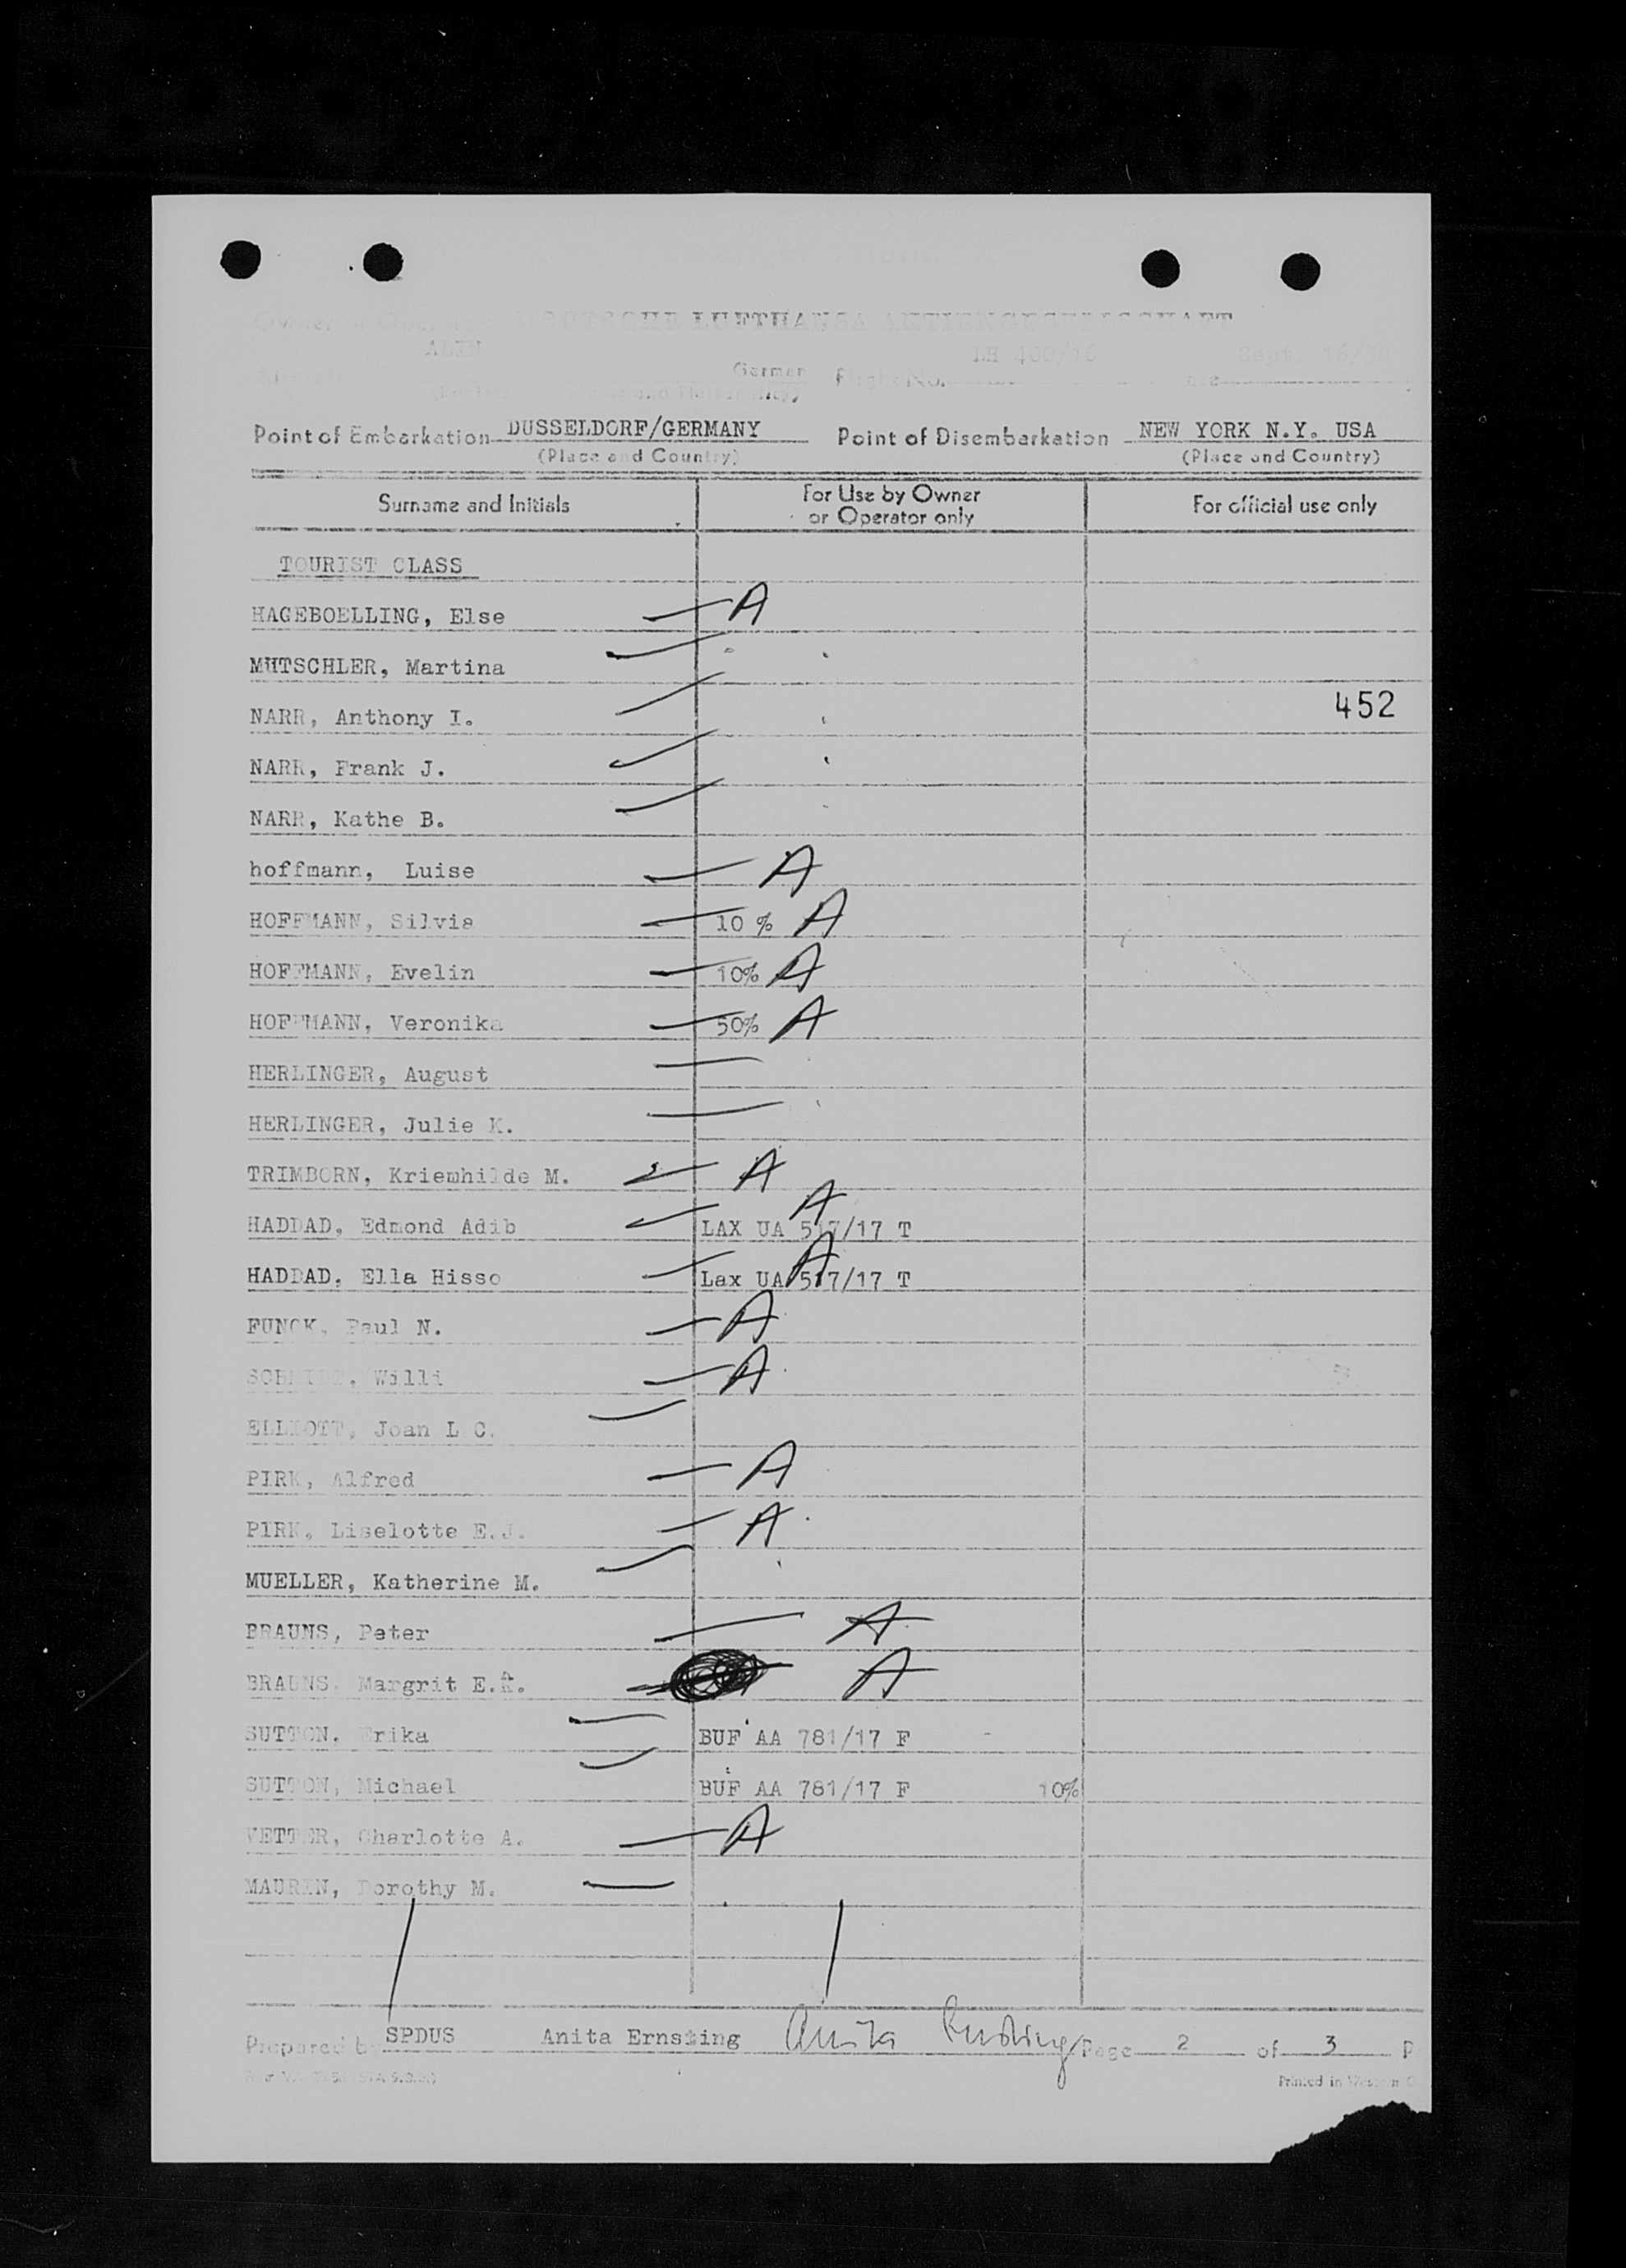 DEUTSCHE LUFTHANSA AKTIENGESELLSCHAFT
German
Point of Embarkation DUSSELDORF/GERMANY Point of Disembarkation NEW YORK N.Y. USA
(Place and Country) (Place and Country)
Surname and Initials For Use by Owner or Operator only For official use only
TOURIST CLASS
HAGEBOELLING, Else A
MUTSCHLER, Martina
NARR, Anthony I. 452
NARR, Frank J.
NARR, Kathe B.
hoffmann, Luise A
HOFFMANN, Silvia 10 % A
HOFFMANN, Evelin 10% A
HOFFMANN, Veronika 50% A
HERLINGER, August
HERLINGER, Julie K.
TRIMBORN, Kriemhilde M. A
HADDAD, Edmond Adib LAX UA 517/17 T A
HADDAD, Ella Hisso Lax UA 517/17 T A
FUNCK, Paul N. A
Willi A
ELLIOTT, Joan L C.
PIRK, Alfred A
PIRK, Liselotte E.J. A
MUELLER, Katherine M.
BRAUNS, Peter A
BRAUNS, Margrit E. A
SUTTON, Erika BUF AA 781/17 F
SUTTON, Michael BUF AA 781/17 F 10%
VETTER, Charlotte A. A
MAUREN, Dorothy M.
Prepared by SPDUS Anita Ernsting Anita Ernsting Page 2 of 3 P
Printed in